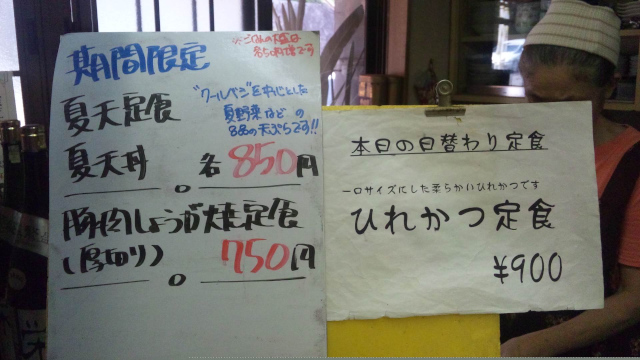 期間限定
夏天定食
"クールベジ"をメインとした
夏野菜などの
8品の天ぷらです!!
夏天丼 各850円
胸肉しょうが焼定食
(厚切り) 750円
本日の日替わり定食
一口サイズにした柔らかいひれかつです
ひれかつ定食
¥900